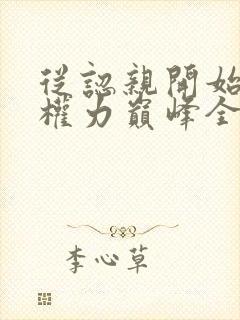 從認親開始
權力巔峰全
李心草